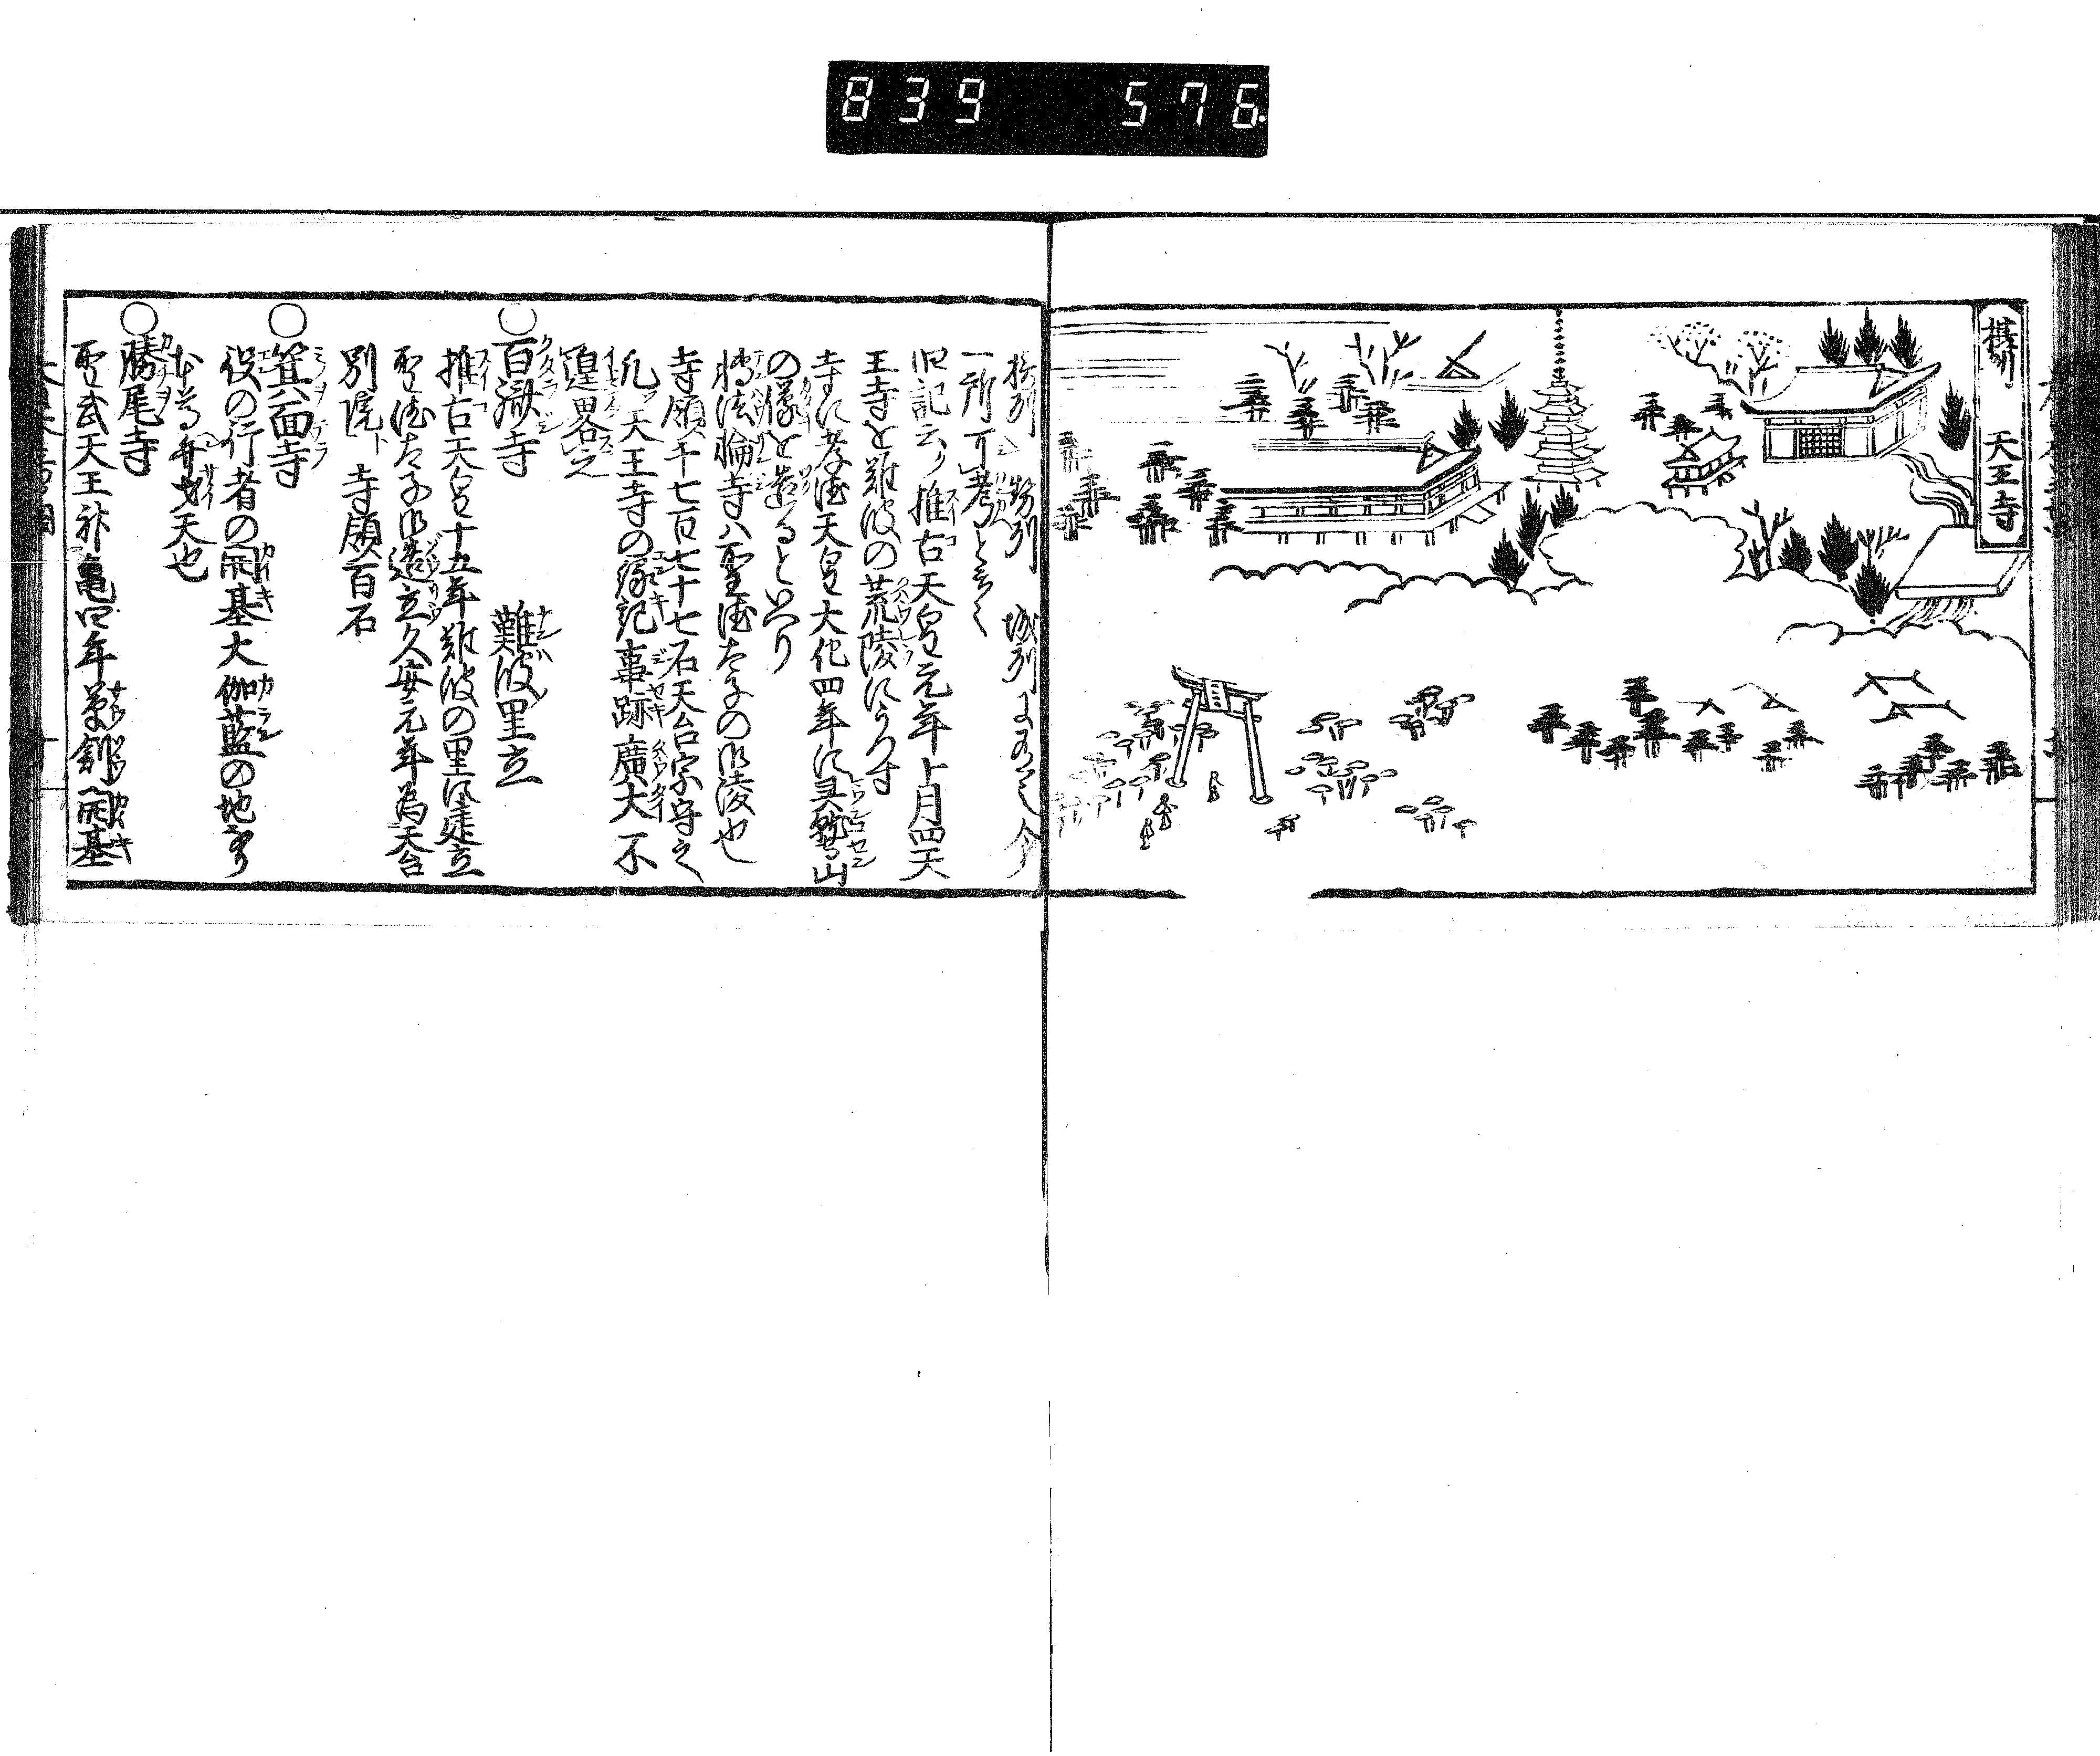 839 576
摂州 天王寺
一所可考と云々
旧記云ク推古天皇元年上月四天
王寺を難波の荒陵にうつす
寺に孝徳天皇大化四年に霊鷲山
の像を造るといへり
転法輪寺ハ聖徳太子の御陵也
寺領千七百七十七石天台宗守之
凡ソ天王寺の縁記事跡廣大不
遑畧之
○百済寺 難波里立
推古天皇十五年難波の里に建立
聖徳太子御造立久安元年為天台
別院ト 寺領百石
○箕面寺
役の行者の開基大伽藍の地なり
本尊弁才天也
○勝尾寺
聖武天王神亀四年草創開基